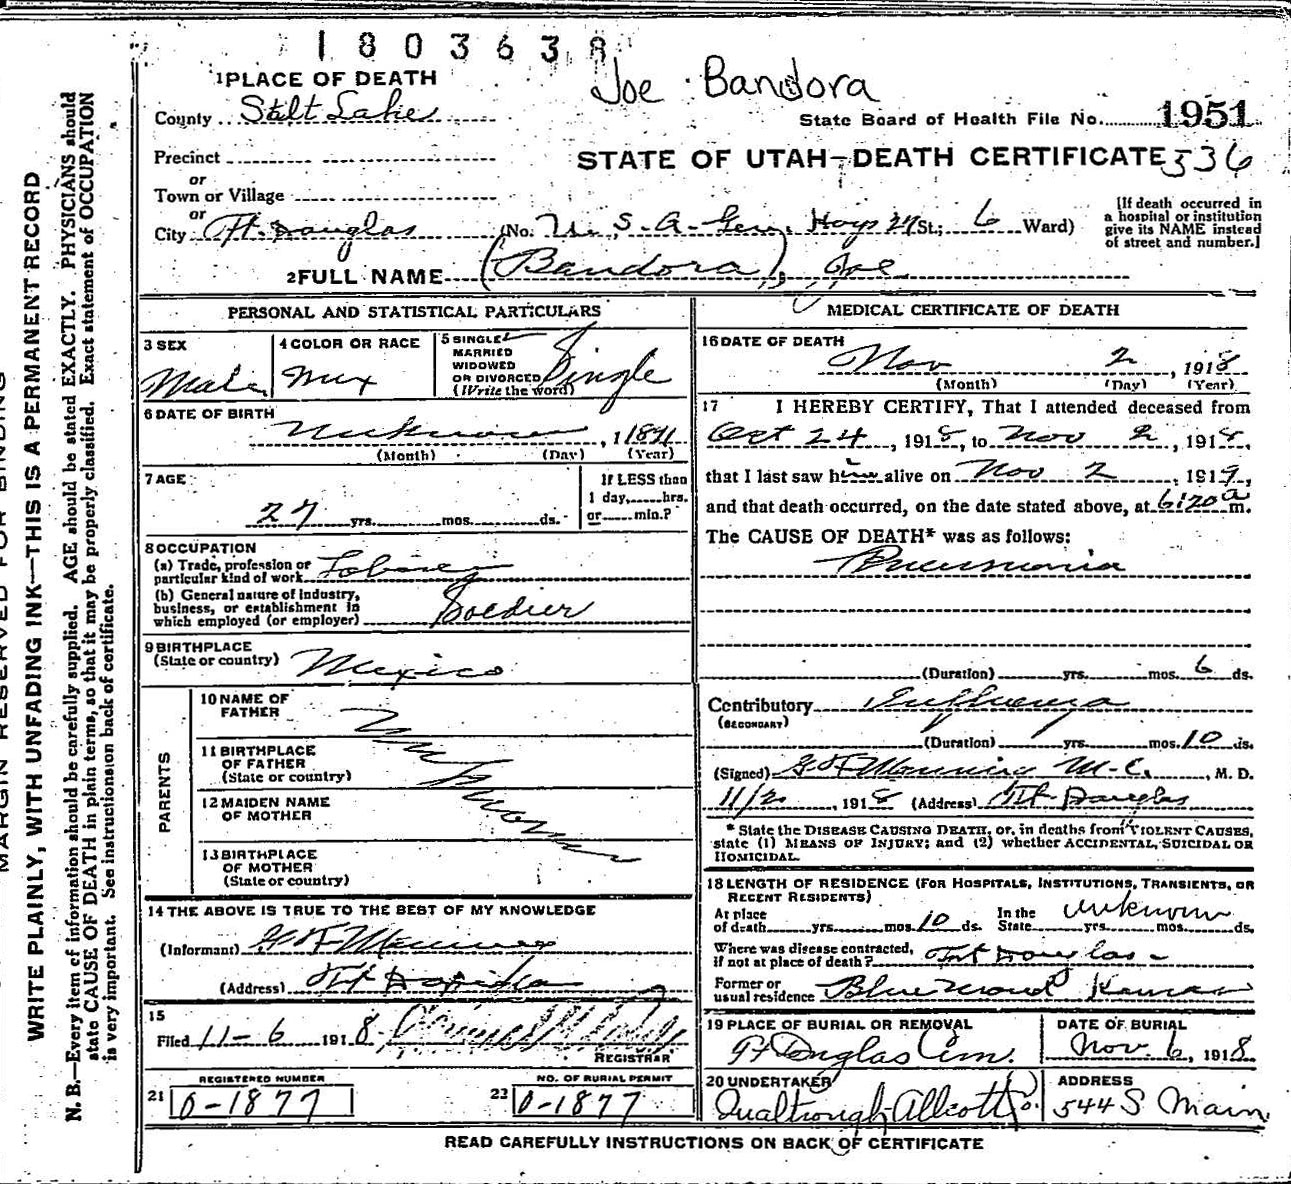 1803638
Joe Bandora
1 PLACE OF DEATH
County Salt Lake
State Board of Health File No. 1951
Precinct
STATE OF UTAH—DEATH CERTIFICATE 536
or
Town or Village
or
City Ft. Douglas (No. U. S. A. Gen. Hosp 27 St.; 6 Ward)
[If death occurred in a hospital or institution give its NAME instead of street and number.]
2 FULL NAME (Bandora), Joe
PERSONAL AND STATISTICAL PARTICULARS
3 SEX
Male
4 COLOR OR RACE
Mex
5 SINGLE
MARRIED
WIDOWED
OR DIVORCED
(Write the word)
Single
6 DATE OF BIRTH
Unknown, 1891
(Month) (Day) (Year)
7 AGE
27 yrs. mos. ds.
If LESS than
1 day, hrs.
or min.?
8 OCCUPATION
(a) Trade, profession or
particular kind of work Laborer
(b) General nature of industry,
business, or establishment in
which employed (or employer) Soldier
9 BIRTHPLACE
(State or country) Mexico
PARENTS
10 NAME OF
FATHER
11 BIRTHPLACE
OF FATHER
(State or country)
12 MAIDEN NAME
OF MOTHER
13 BIRTHPLACE
OF MOTHER
(State or country)
Unknown
14 THE ABOVE IS TRUE TO THE BEST OF MY KNOWLEDGE
(Informant)
(Address) Ft Douglas
15
Filed 11-6 1918
REGISTRAR
REGISTERED NUMBER
21 0-1877
NO. OF BURIAL PERMIT
22 0-1877
MEDICAL CERTIFICATE OF DEATH
16 DATE OF DEATH
Nov 2, 1918
(Month) (Day) (Year)
17 I HEREBY CERTIFY, That I attended deceased from
Oct 24, 1918, to Nov 2, 1918,
that I last saw him alive on Nov 2, 1919,
and that death occurred, on the date stated above, at 6:20 a m.
The CAUSE OF DEATH* was as follows:
Pneumonia
(Duration) yrs. mos. 6 ds.
Contributory Influenza
(SECONDARY)
(Duration) yrs. mos. 10 ds.
(Signed) M. C., M. D.
11/2, 1918 (Address) Ft Douglas
* State the DISEASE CAUSING DEATH, or, in deaths from VIOLENT CAUSES,
state (1) MEANS OF INJURY; and (2) whether ACCIDENTAL, SUICIDAL OR
HOMICIDAL.
18 LENGTH OF RESIDENCE (FOR HOSPITALS, INSTITUTIONS, TRANSIENTS, OR
RECENT RESIDENTS)
At place
of death yrs. mos. 10 ds.
In the
State Unknown yrs. mos. ds.
Where was disease contracted,
if not at place of death? Fort Douglas
Former or
usual residence Blue Mound Kansas
19 PLACE OF BURIAL OR REMOVAL
Ft Douglas Cem.
DATE OF BURIAL
Nov. 6, 1918
20 UNDERTAKER
Qualtrough Allcott Co.
ADDRESS
544 S Main
READ CAREFULLY INSTRUCTIONS ON BACK OF CERTIFICATE
MARGIN RESERVED FOR BINDING
WRITE PLAINLY, WITH UNFADING INK—THIS IS A PERMANENT RECORD
N. B.—Every item of information should be carefully supplied. AGE should be stated EXACTLY. PHYSICIANS should
state CAUSE OF DEATH in plain terms, so that it may be properly classified. Exact statement of OCCUPATION
is very important. See instructions on back of certificate.